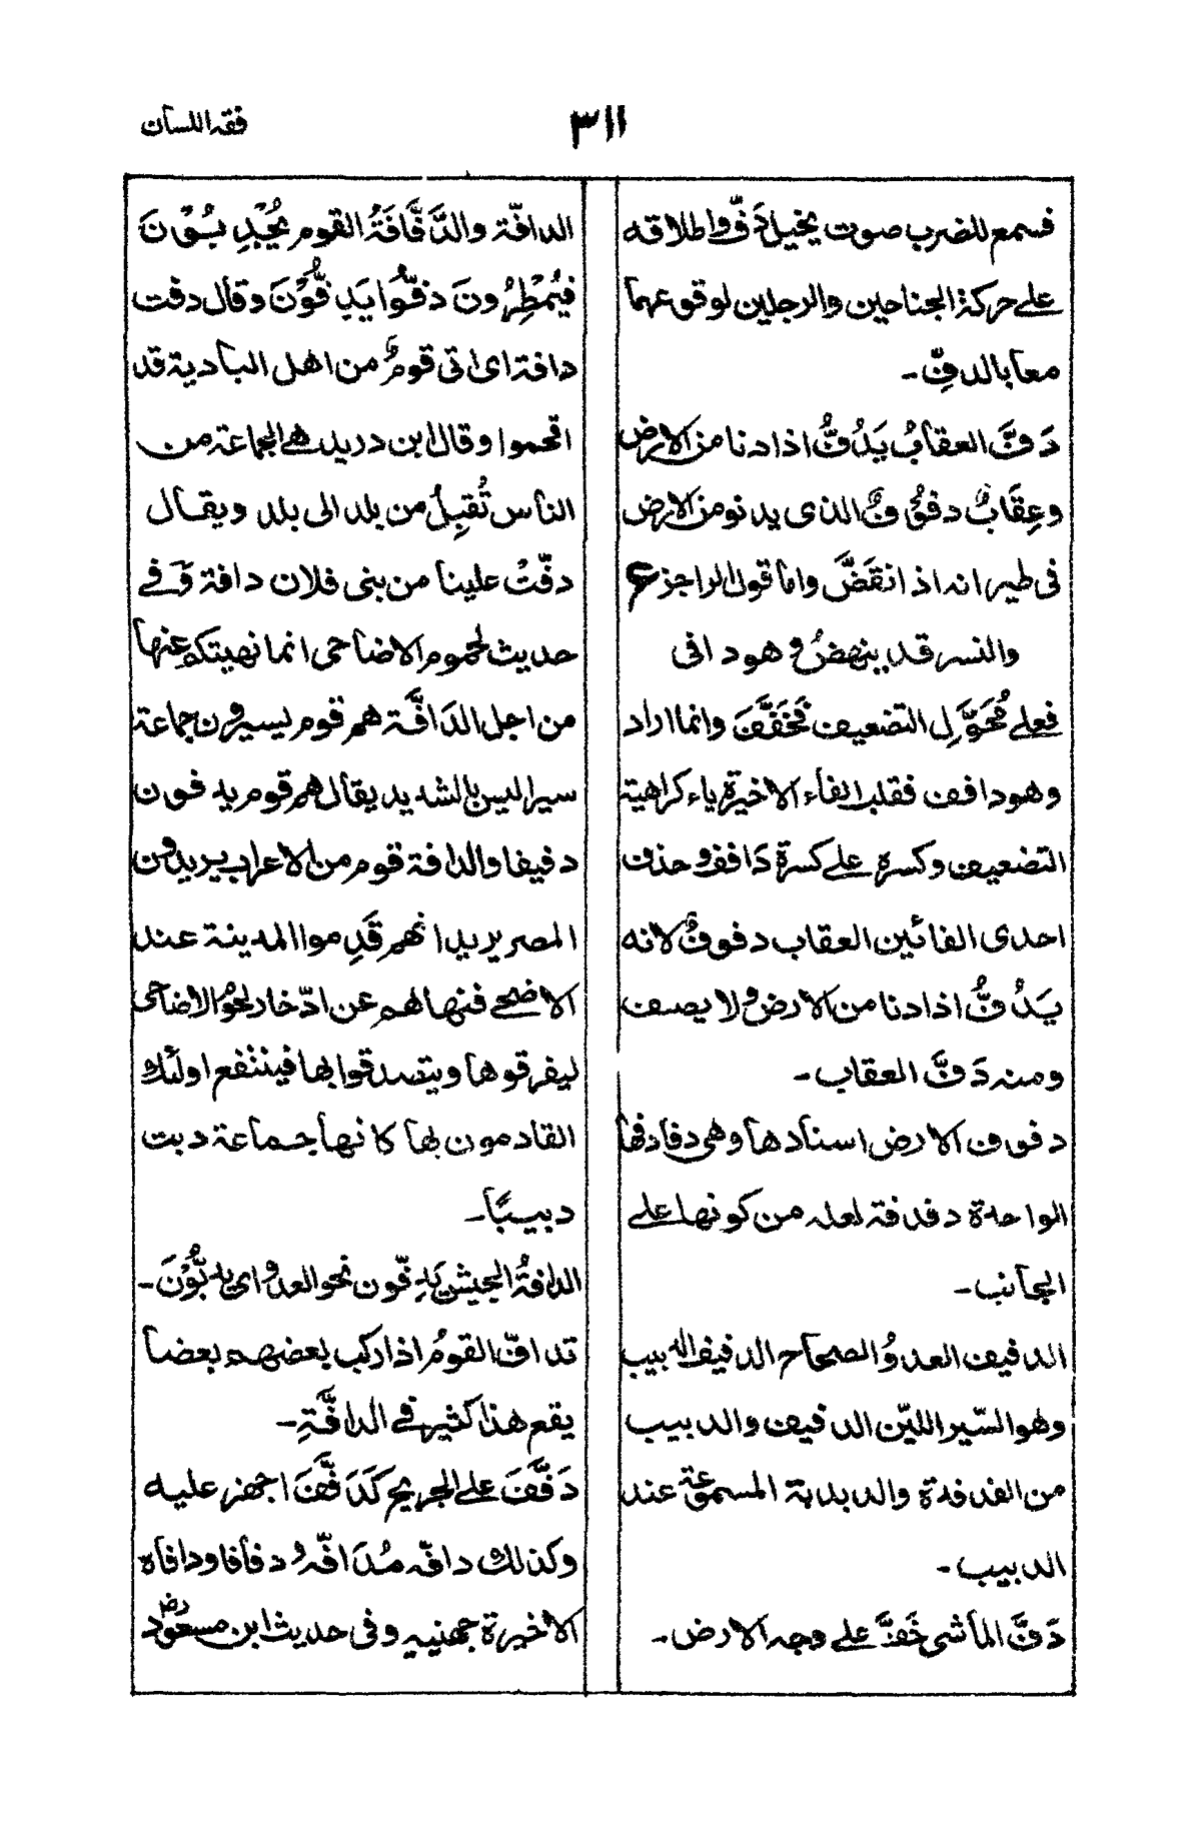 فقه اللسان
٣١١
فسمع للضرب صوت يخيل دَفّ واطلاقه
على حركة الجناحين والرجلين لوقوعهما
معا بالدفّ۔
دَفَّ العقابُ يَدُفُّ اذا دنا من الارض
وعِقَابٌ دفُوفٌ الذى يدنو من الارض
فى طيرانه اذا انقَضَّ واما قول الراجز ع
والنسر قد ينهضُ وهو دافى
فعلى مُحَوَّلِ التضعيف فَخَفَّفَ وانما اراد
وهو دافف فقلب الفاء الاخيرة ياء كراهية
التضعيف وكسره على كسرة دَافف وحذف
احدى الفائين العقاب دفوفٌ لانه
يَدُفُّ اذا دنا من الارض ولا يصف
ومنه دَفَّ العقاب۔
دفوف الارض اسنادها وهى دفادفها
الواحدة دفدفة لعله من كونها على
الجانب۔
الدفيف العدوُ الصحاح الدفيف الدبيب
وهو السّير الليّن الدفيف والدبيب
من الفدفدة والدبدبة المسموعة عند
الدبيب۔
دَفَّ الماشى خَفَّ على وجه الارض۔
الدافّة والدَّفَّافَةُ القوم يُجْدِبُوْنَ
فيُمْطِرُونَ دفُّوا يَدِفُّوْنَ وقال دفت
دافة اى اتى قومٌ من اهل البادية قد
اقحموا وقال ابن دريد هى الجماعة من
الناس تُقبِلُ من بلد الى بلد ويقال
دفّتْ علينا من بنى فلان دافة وَفى
حديث لحموم الاضاحى انما نهيتكم عنها
من اجل الدَافَّة هم قوم يسيرون جماعة
سيرا ليس بالشديد يقال هم قوم يدفون
دفيفا والدافة قوم من الاعراب يريدون
المصر يريد انهم قَدِموا المدينة عند
الاضحى فنهاهم عن ادّخار لحوم الاضاحى
ليفرقوها ويتصدقوا بها فينتفع اولئك
القادمون بها كانها جماعة دبت
دبيبًا۔
الدافةُ الجيش يَدِفّون نحو العدو اى يدبُّوْنَ۔
تدافّ القومُ اذا ركب بعضهم بعضا
يقع هذا كثيرا فى الدافَّةِ۔
دَفَّفَ على الجريح كَذَفَّفَ اجهز عليه
وكذلك دافّه مُدَافَّة ودفافا ودافاه
الاخيرة جهنيه وفى حديث ابن مسعودرض